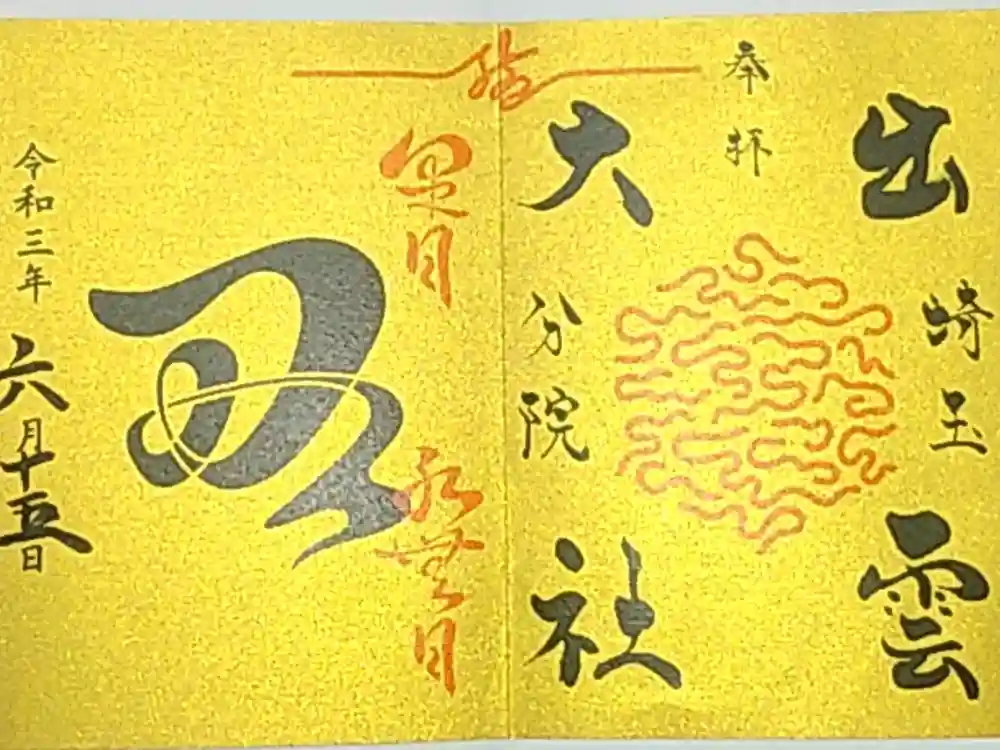 出雲
埼玉
奉拝
大社
分院
結
水無月
令和三年六月十五日